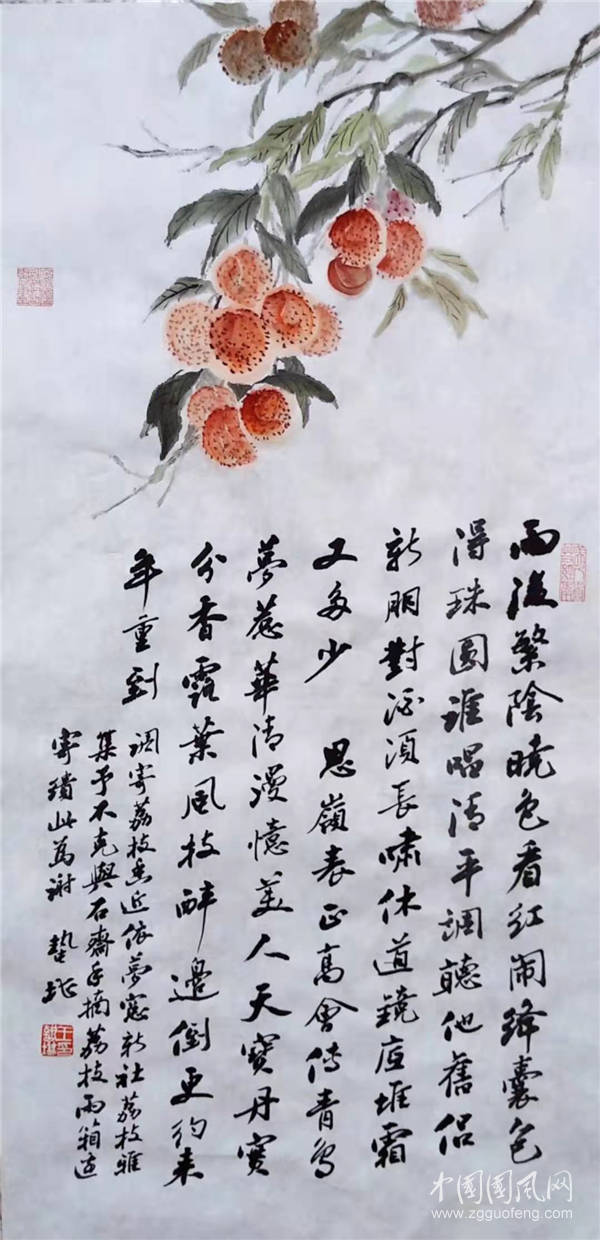 雨後繁陰曉色看紅鬧絳囊包
得珠圓誰唱清平調聽他舊侶
新朋對酒須長嘯休道鏡底堆霜
又多少 思嶺表正高會傳青鳥
夢惹華清漫憶美人天寶丹實
分香露葉風枝醉邊倒更約來
年重到
調寄荔枝香近依夢窗新社荔枝雅
集予不克與石齋手摘荔枝兩箱遠
寄此為謝
中國國風网
www.zgguofeng.com